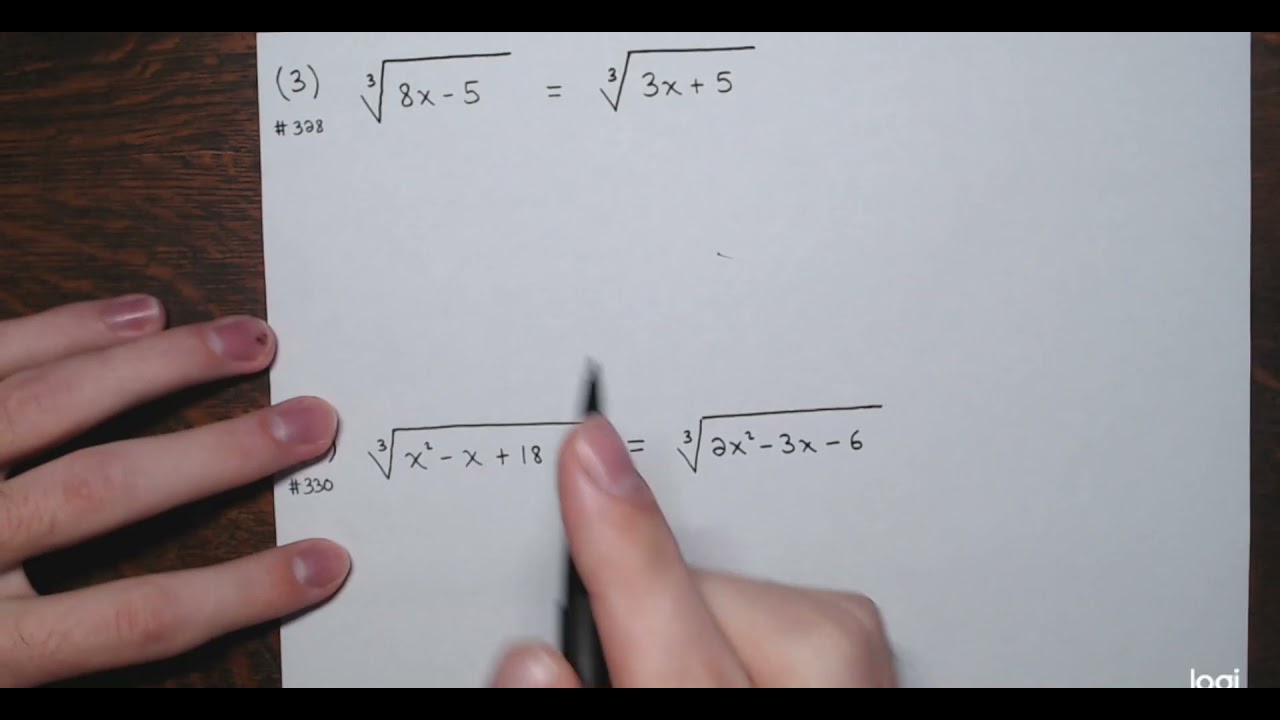 (3) ∛(8x - 5) = ∛(3x + 5)
#328
∛(x² - x + 18) = ∛(2x² - 3x - 6)
#330
logi